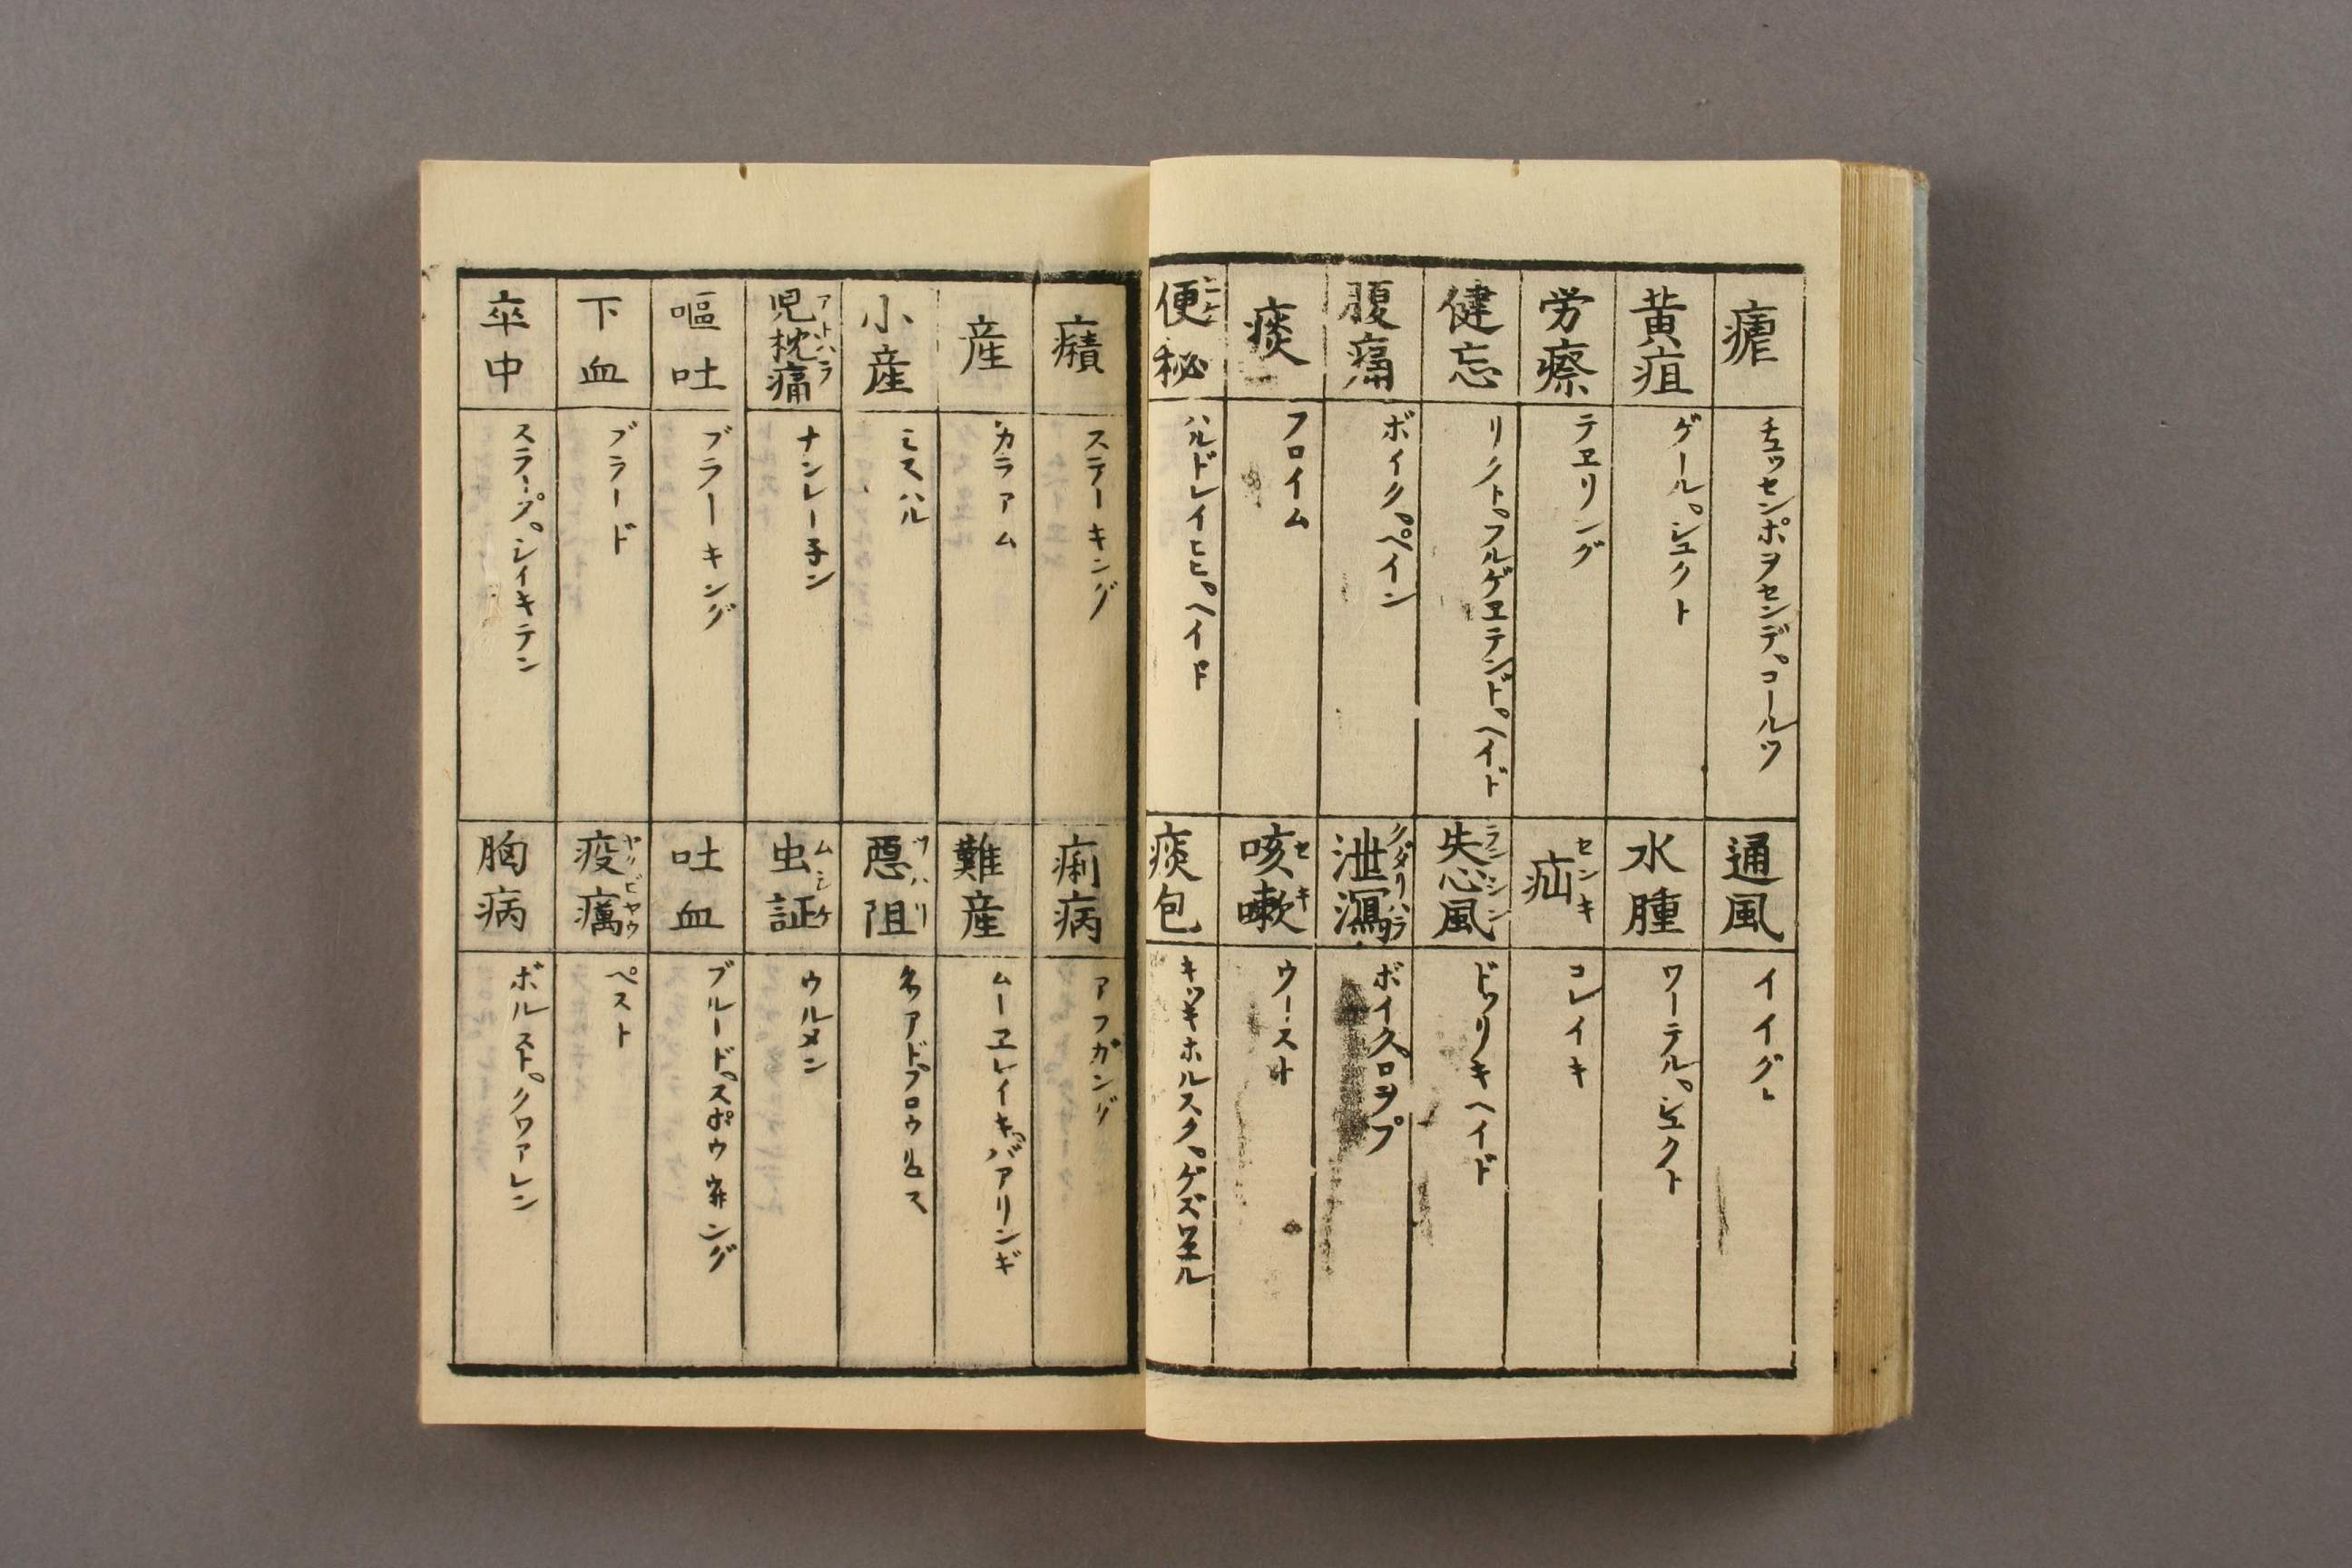 瘧
チュッセンポヲセンデ。コールツ
黄疽
ゲール。シュクト
労瘵
テヱリング
健忘
リクト。フルゲヱテンド。ヘイド
腹痛
ボイク。ペイン
痰
フロイム
便秘
ハルドレイヒヒ。ヘイド
通風
水腫
ワーテル。シュクト
疝 センキ
コレイキ
失心風 ランシン
ドツリキヘイド
泄瀉 クダリハラ
ボイク。ロヲプ
咳嗽 セキ
痰包
キッキホルスク。ゲズエル
癪
ステーキング
産
カラアム
小産
ミスハル
児枕痛 アトハラ
ナンレー子ン
嘔吐
ブラーキング
下血
ブラード
卒中
スラープ。シイキテン
痢病
アフガング
難産
ムーヱレイキ。バアリンギ
悪阻 ツハリ
虫証 ムシケ
ウルメン
吐血
疫癘 ヤクビヤウ
ペスト
胸病
ボルスト。クワアレン